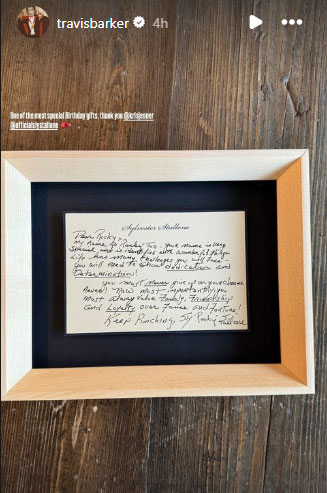 travisbarker 4h
One of the most special Birthday gifts, thank you @krisjenner
@officialslystallone
Sylvester Stallone
Dear Rocky,
my name is Rocky Too. your name is very
special and is identified with wonderful things
Life has many challenges you will face -
you will need to show dedication and
Determination!
you must Never give up on your Dreams
Never! Now most importantly you
must always value Family, Friendship
and Loyalty over Fame and fortune!
Keep Punching, Sly Rocky Stallone